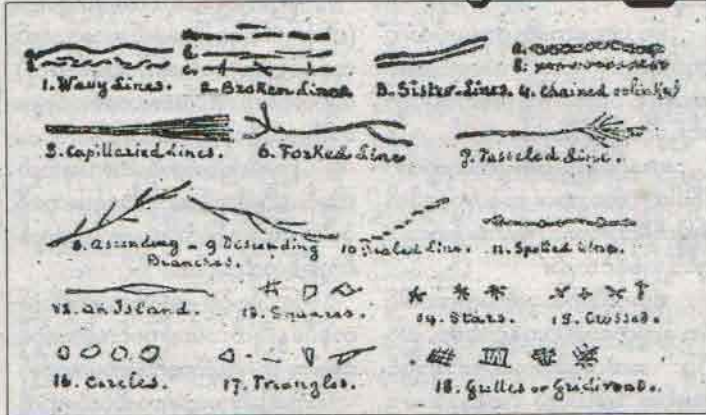 a.
1. Wavy Lines.
b.
c.
2. Broken Lines
3. Sister Lines.
a.
B:
4. Chained or linked
5. Capillaried Lines.
6. Forked Line
7. Tasseled Line.
8. Ascending - 9 Discending
Branches.
10 Line.
11. Spotted Line.
12. an Island.
13. Squares.
14. Stars.
15. Crosses.
16. Circles.
17. Triangles.
18. Grilles or Gridirons.